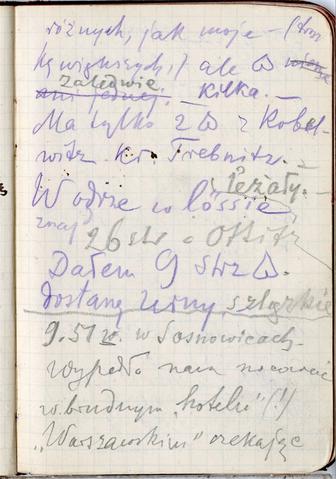 różnych, jak moje — (trzon
kę większych,) ale △
zaledwie
ani jednej, kilka. —
Ma tylko 2 △ z Kobel-
witz Kr. Trebnitz. —
W odrze w lössie, leżały. —
26 str z Ottitz
Dałem 9 strz △.
Dostanę urny śląskie
9.51 r. w Sosnowicach
wypadło nam nocować
w brudnym „hotelu" (!)
„Warszawskim" czekając